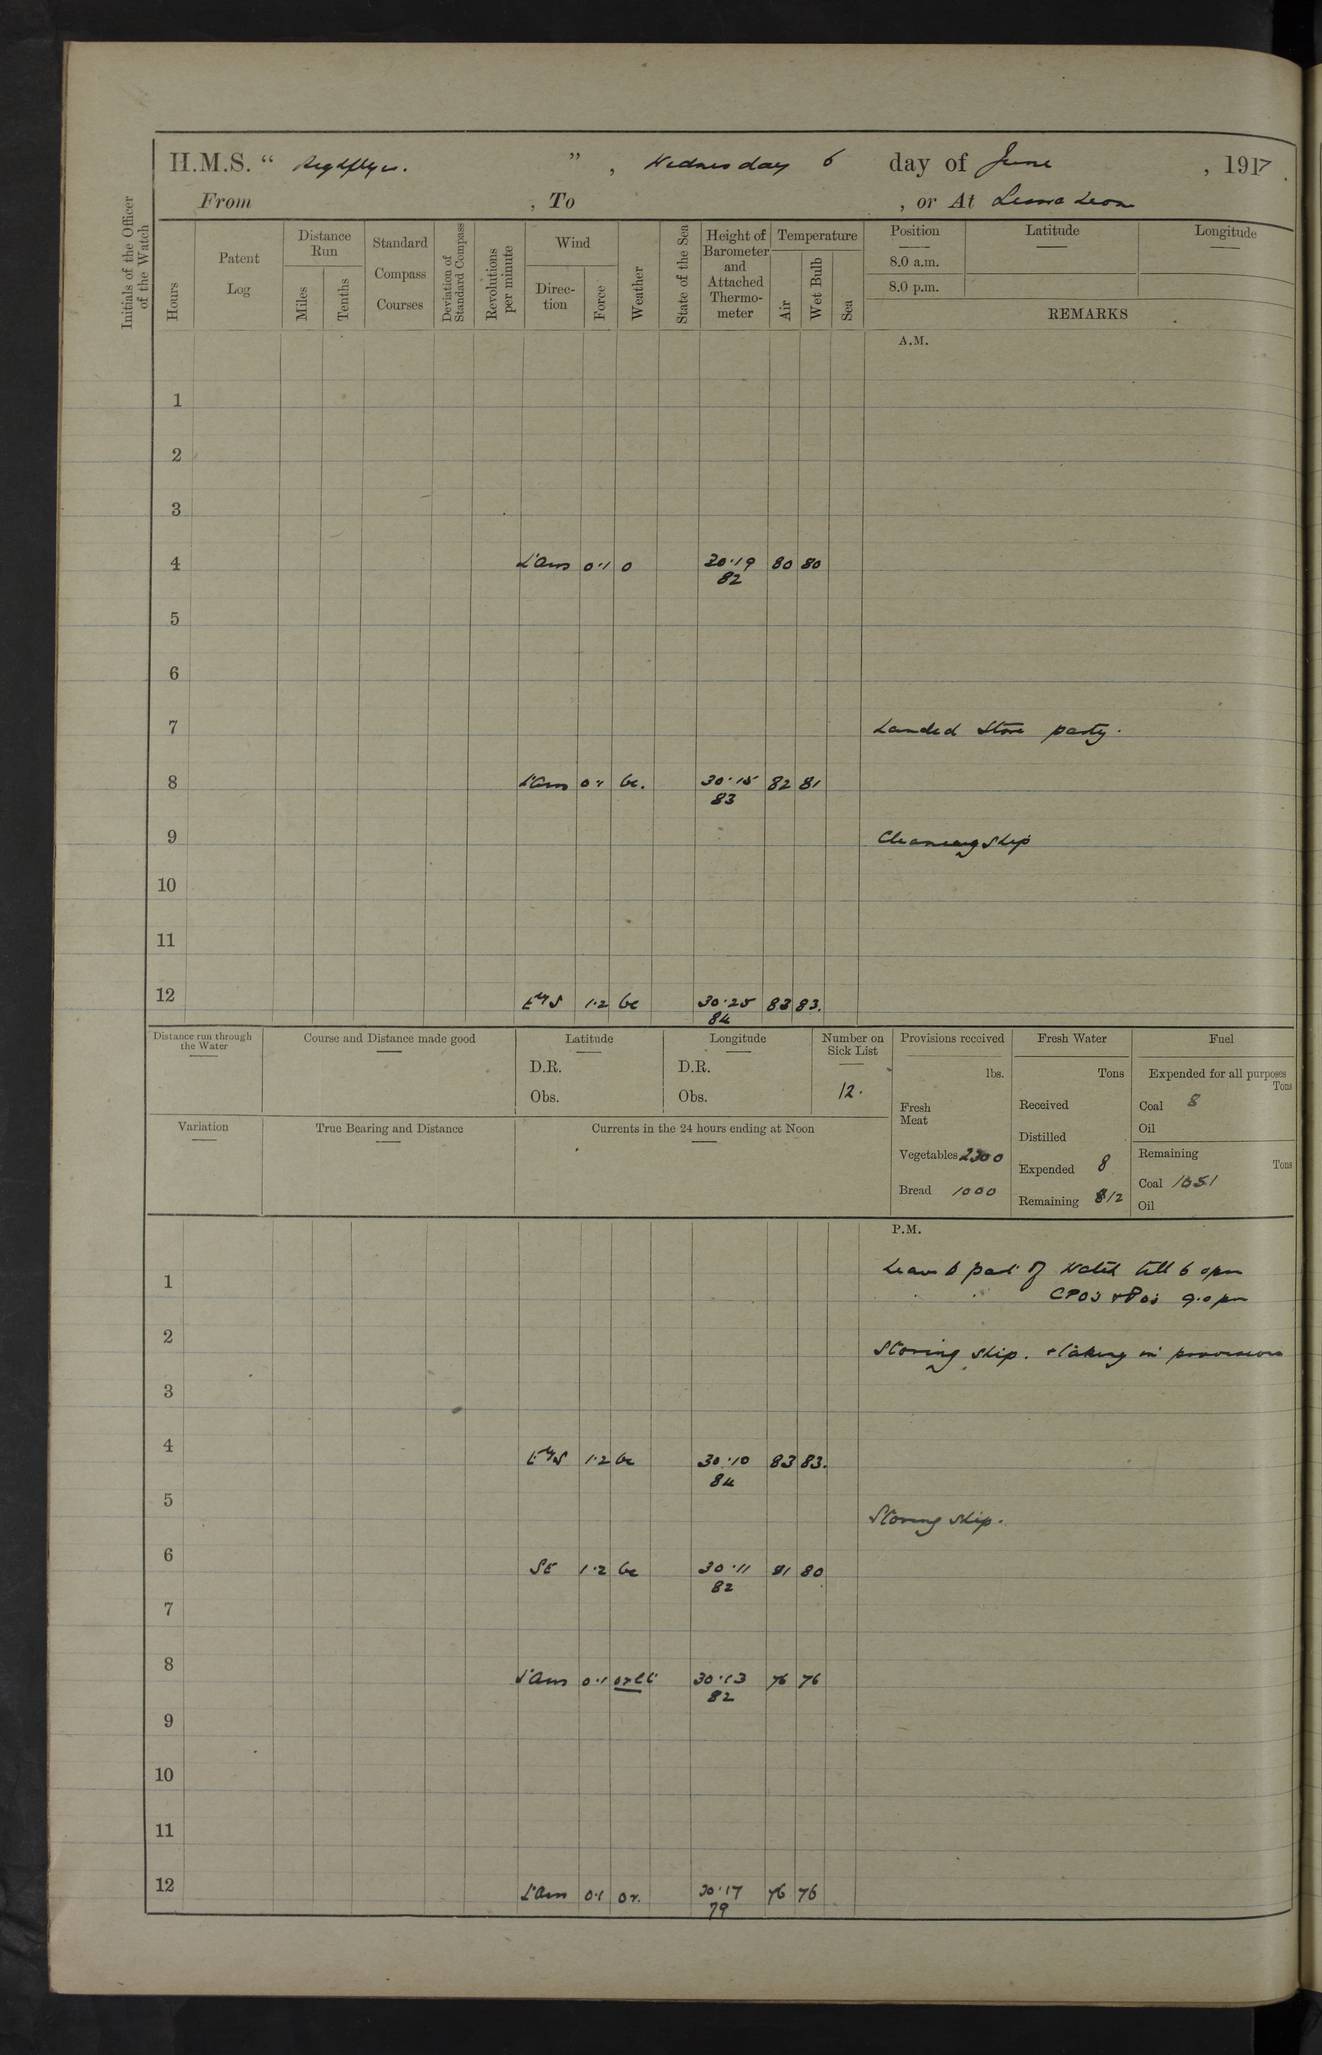 H.M.S. “ Highflyer. ” , Wednesday 6 day of June , 1917 .
From , To , or At Sierra Leone
Initials of the Officer of the Watch
Hours
Patent Log
Distance Run
Miles
Tenths
Standard Compass Courses
Deviation of Standard Compass
Revolutions per minute
Wind
Direction
Force
Weather
State of the Sea
Height of Barometer and Attached Thermometer
Temperature
Air
Wet Bulb
Sea
Position
8.0 a.m.
8.0 p.m.
Latitude
Longitude
REMARKS
A.M.
1
2
3
4 L'Airs 0·1 0 30·19 80 80
82
5
6
7 Landed Store party.
8 L'Airs 0·1 bc. 30·15 82 81
83
9 Cleaning Ship
10
11
12 E'ly S 1·2 bc 30·25 83 83.
84
Distance run through the Water
Course and Distance made good
Latitude
D.R.
Obs.
Longitude
D.R.
Obs.
Number on Sick List
12.
Provisions received
lbs.
Fresh Meat
Vegetables 2300
Bread 1000
Fresh Water
Tons
Received
Distilled
Expended 8
Remaining 812
Fuel
Expended for all purposes
Tons
Coal 8
Oil
Remaining
Tons
Coal 1051
Oil
Variation
True Bearing and Distance
Currents in the 24 hours ending at Noon
P.M.
1 Leave to part of Watch till 6 0pm
CPOs & POs 9.0 pm
2 Storing ship. & taking in provisions
3
4 E'ly S 1·2 bc 30·10 83 83.
84
5 Storing ship.
6 SE 1·2 bc 30·11 81 80
82
7
8 L'Airs 0·1 orlt 30·13 76 76
82
9
10
11
12 L'Airs 0·1 or. 30·17 76 76
79